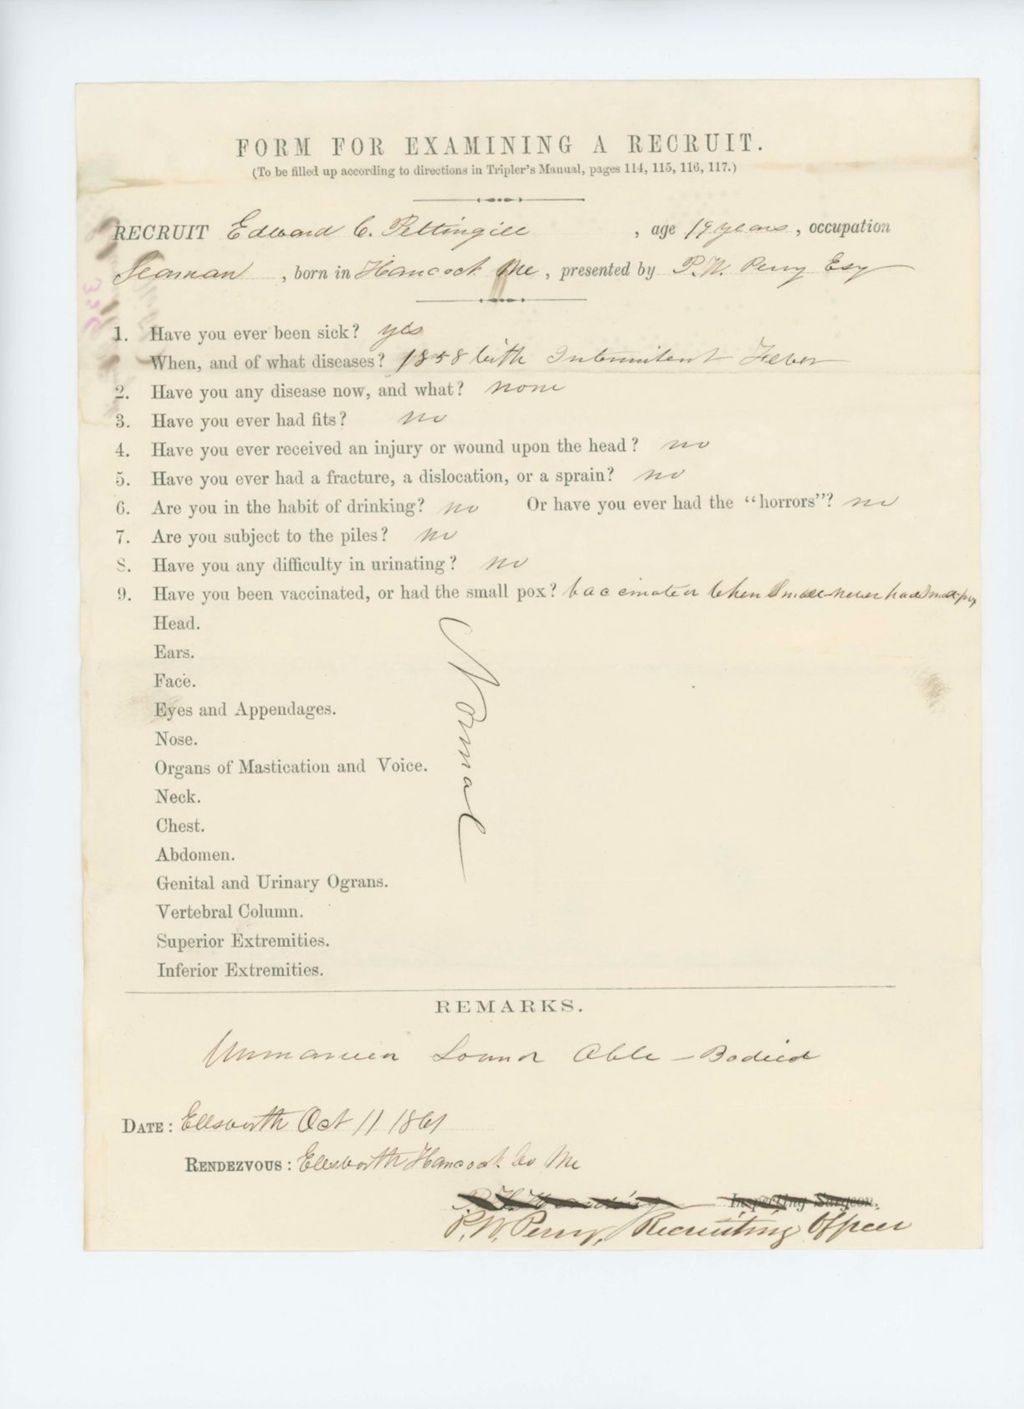 FORM FOR EXAMINING A RECRUIT.
(To be filled up according to directions in Tripler's Manual, pages 114, 115, 116, 117.)
RECRUIT Edward C. Pettingill, age 19 years, occupation
Seaman, born in Hancock Me, presented by P. W. Perry Esq
1. Have you ever been sick? yes
When, and of what diseases? 1858 with Intermitent Fever
2. Have you any disease now, and what? none
3. Have you ever had fits? no
4. Have you ever received an injury or wound upon the head? no
5. Have you ever had a fracture, a dislocation, or a sprain? no
6. Are you in the habit of drinking? no Or have you ever had the "horrors"? no
7. Are you subject to the piles? no
8. Have you any difficulty in urinating? no
9. Have you been vaccinated, or had the small pox? vaccinated when Small never had Small pox
Head.
Ears.
Face.
Eyes and Appendages.
Nose.
Organs of Mastication and Voice.
Neck.
Chest.
Abdomen.
Genital and Urinary Ograns.
Vertebral Column.
Superior Extremities.
Inferior Extremities.
Normal
REMARKS.
Unmarried Sound Able-Bodied
DATE: Ellsworth Oct 11 1861
RENDEZVOUS: Ellsworth Hancock Co Me
Inspecting Surgeon.
P. W. Perry, Recruiting Officer